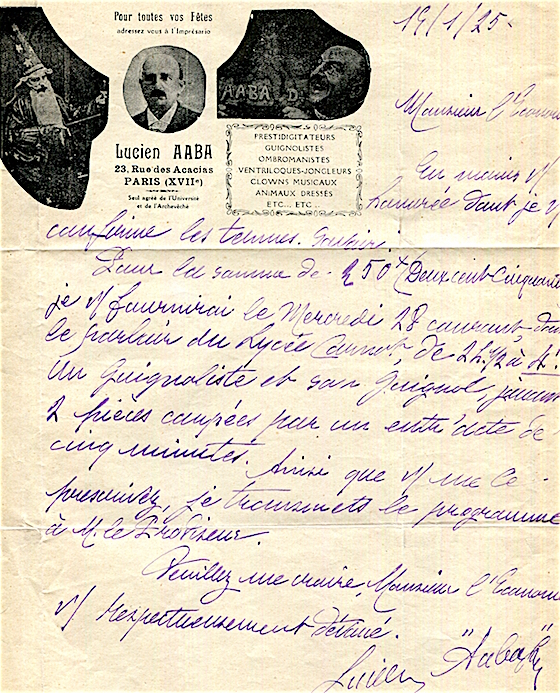 Pour toutes vos Fêtes
adressez vous à l'Imprésario
AABA D.
Lucien AABA
23, Rue des Acacias
PARIS (XVIIe)
Seul agréé de l'Université
et de l'Archevêché
PRESTIDIGITATEURS
GUIGNOLISTES
OMBROMANISTES
VENTRILOQUES-JONGLEURS
CLOWNS MUSICAUX
ANIMAUX DRESSÉS
ETC... ETC..
19/1/25-
Monsieur l'Econom
En mains v/
honorée dont je v/
confirme les termes.
Pour la somme de 250f (Deux cent Cinquante
je v/ fournirai le Mercredi 28 courant, dans
le parloir du Lycée Carnot, de 2h1/2 à 4h
Un guignoliste et son Guignol, jouant
2 pièces coupées par un entr'acte de
cinq minutes. Ainsi que v/ me le
prescrivez, je transmets le programme
à M. le Proviseur.
Veuillez me croire, Monsieur l'Econom
v/ respectueusement dévoué.
Lucien "Aaba"